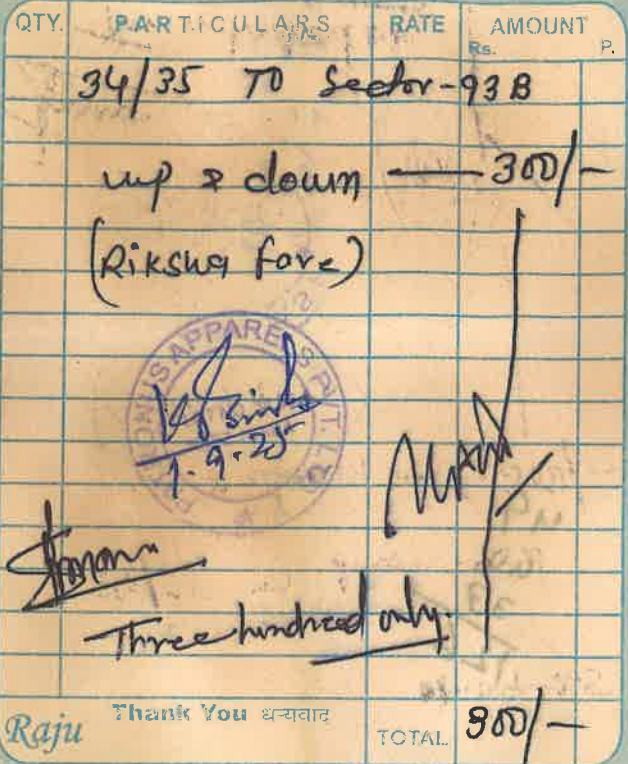 QTY. PARTICULARS RATE AMOUNT
Rs. P.
34/35 TO Sector-93B
up & down — 300/-
(Riksha fare)
APPARELS PVT. LTD
1.9.25
Three hundred only.
Thank You धन्यवाद
Raju
TOTAL 300/-